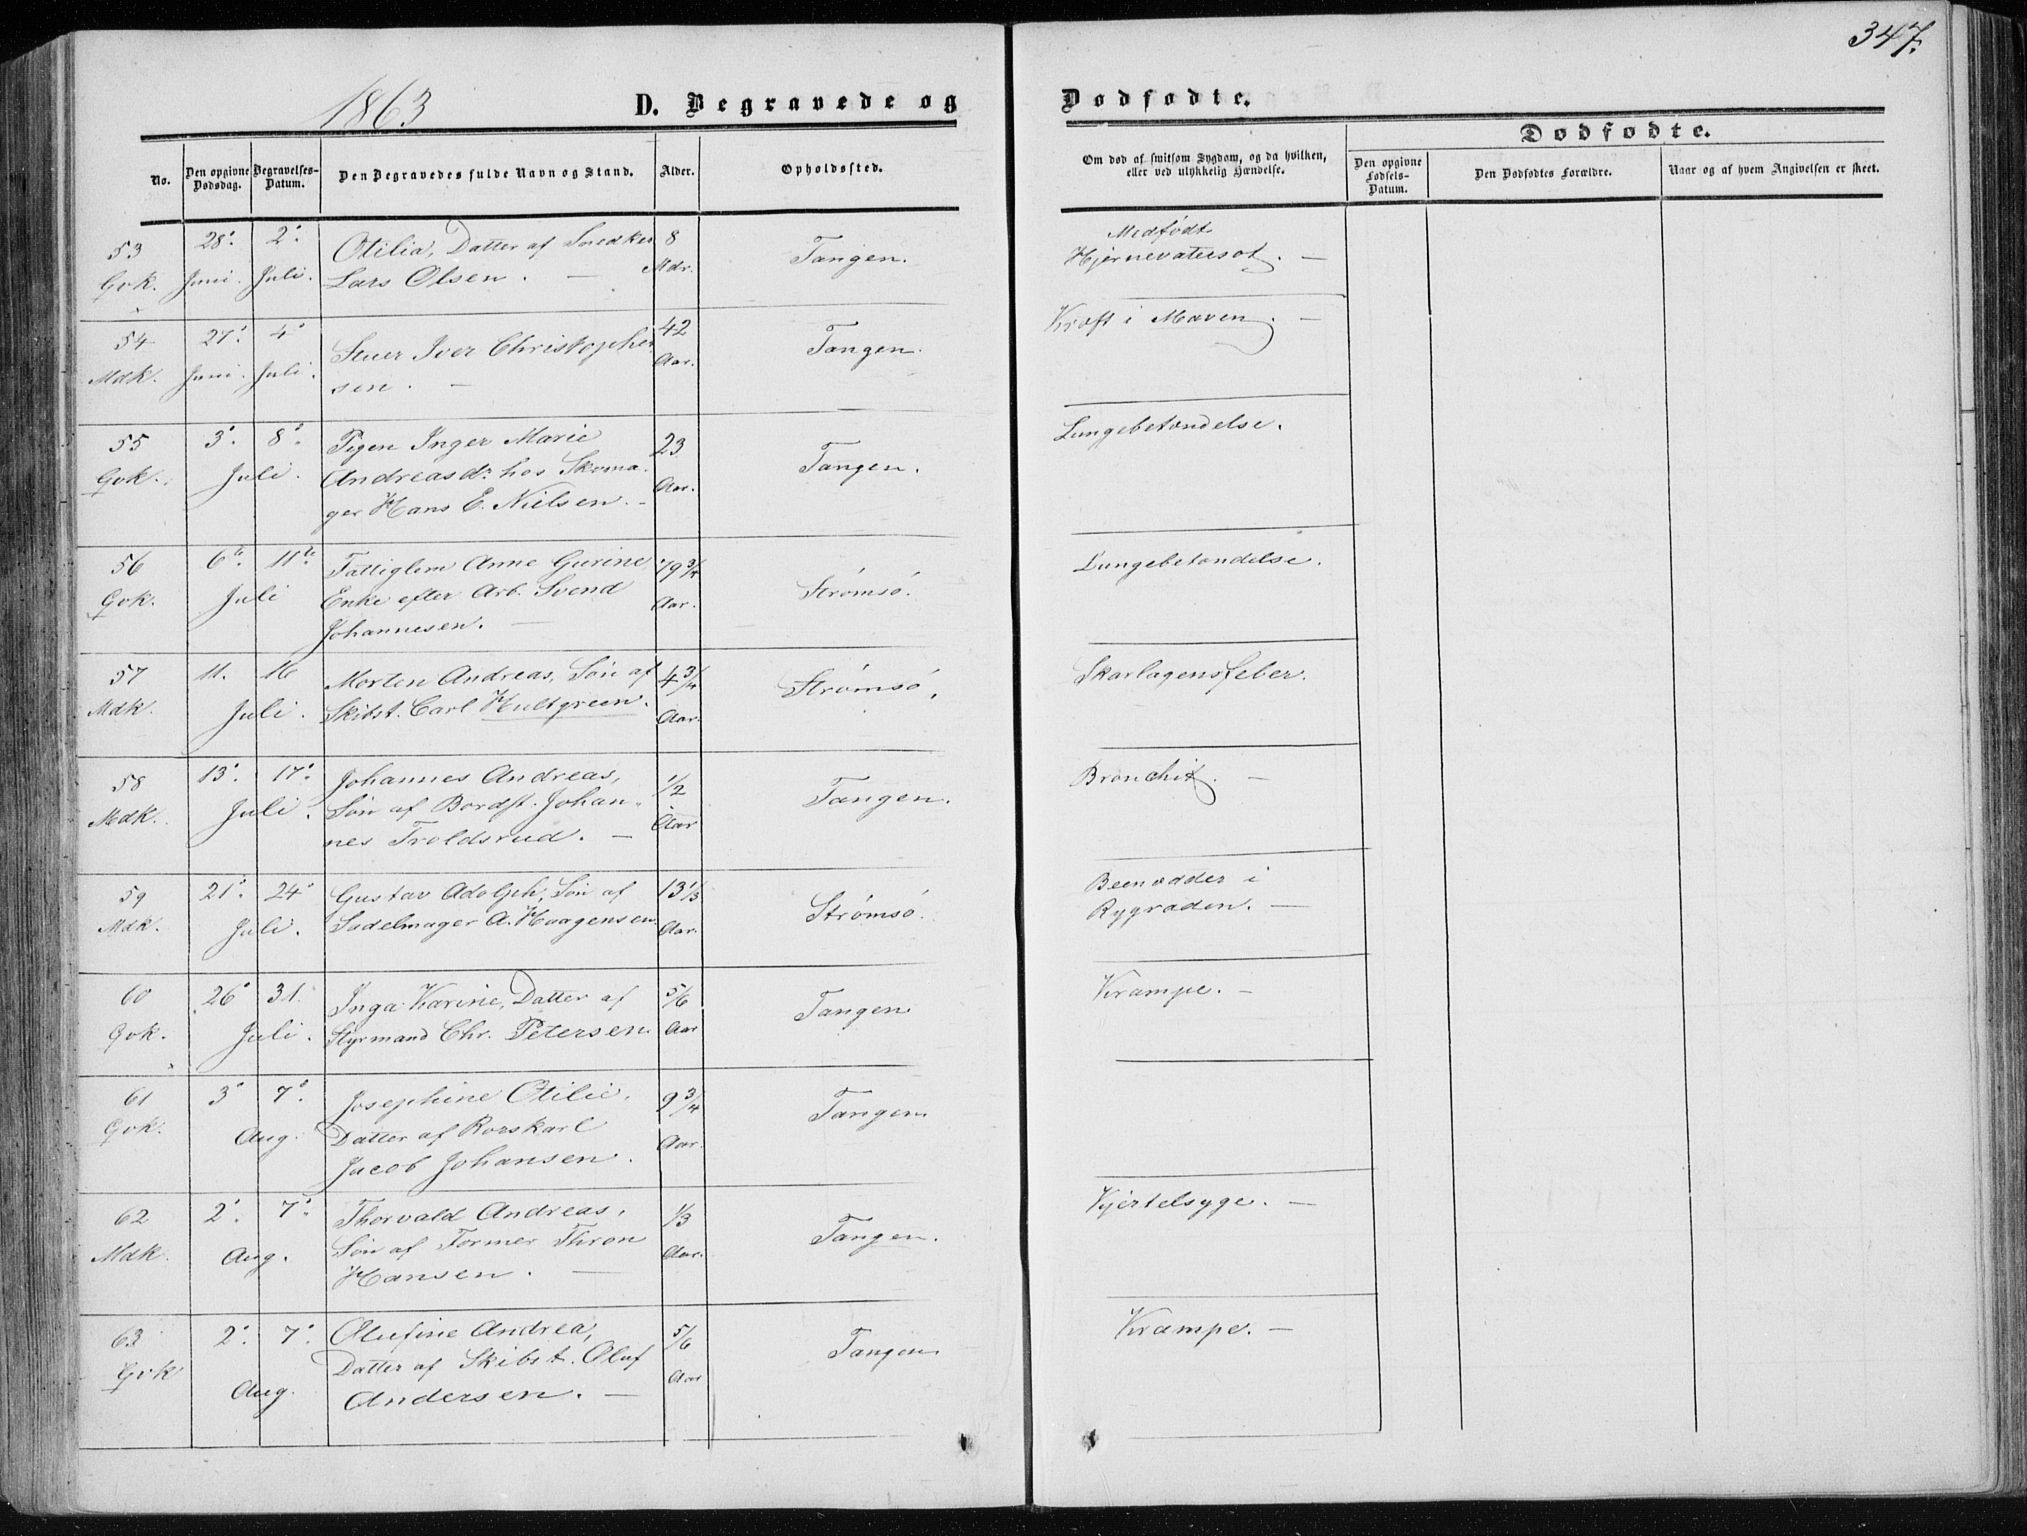 347.
1863
D. Begravede og
Dødfødte.
Dødfødte.
No.
Den opgivne
Dødsdag.
Begravelses-
Datum.
Den Begravedes fulde Navn og Stand.
Alder.
Opholdssted.
Om død af smitsom Sygdom, og da hvilken,
eller ved ulykkelig Hændelse.
Den opgivne
Fødsels-
Datum.
Den Dødfødtes Forældre.
Naar og af hvem Angivelsen er skeet.
53
Gvk.
28.
Juni.
2.
Juli.
Otilia, Datter af Snedker
Lars Olsen. —
8
Mdr.
Tangen.
Medfødt
Hjernevatersot. —
54
Mdk.
27.
Juni.
4.
Juli.
Iver Christopher
sen. —
42
Aar.
Tangen.
Kræft i Maven. —
55
Gvk.
3. 8.
Juli.
Pigen Inger Marie
Andreasdr. hos Skoma-
ger Hans E. Nielsen. —
23
Aar.
Tangen.
Lungebetændelse.
56
Gvk.
6te. 11te.
Juli
Fattiglem Anne Gurine
Enke efter Arb. Svend
Johannesen. —
79 3/4
Aar.
Strømsø.
Lungebetændelse.
57
Mdk.
11. 16
Juli.
Morten Andreas, Søn af
Skibst. Carl Hultgreen.
4 3/4
Aar.
Strømsø.
Skarlagensfeber.
58
Mdk.
13. 17.
Juli.
Johannes Andreas,
Søn af Bordst. Johan-
nes Troldsrud. —
1/2
Aar
Tangen.
Bronchit. —
59
Mdk.
21. 24
Juli.
Gustav Adolph, Søn af
Sadelmager A. Haagensen.
13 1/3
Aar.
Strømsø.
Beenædder i
Rygraden. —
60
Gvk.
26 31.
Juli.
Inga Karine, Datter af
Styrmand Chr. Petersen.
5/6
Aar
Tangen
Krampe. —
61
Gvk.
3 7.
Aug.
Josephine Otilie,
Datter af Rorskarl
Jacob Johansen.
9 3/4
Aar.
Tangen.
62
Mdk.
2. 7.
Aug.
Thorvald Andreas,
Søn af Former Thron
Hansen. —
1/3
Aar.
Tangen.
Kjertelsyge. —
63
Gvk
2. 7.
Aug.
Olufine Andrea,
Datter af Skibst. Oluf
Andersen. —
5/6
Aar
Tangen.
Krampe. —